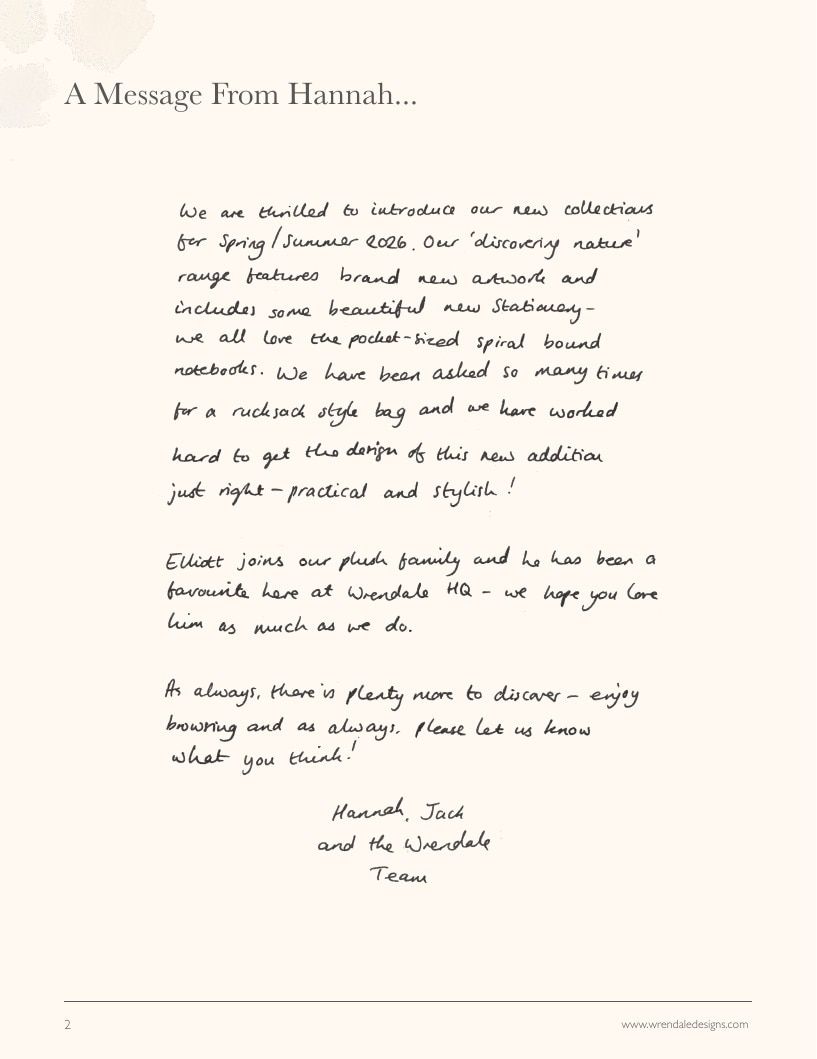 A Message From Hannah...
We are thrilled to introduce our new collections
for Spring/Summer 2026. Our 'discovering nature'
range features brand new artwork and
includes some beautiful new Stationery -
we all love the pocket-sized spiral bound
notebooks. We have been asked so many times
for a rucksack style bag and we have worked
hard to get the design of this new addition
just right - practical and stylish!
Elliott joins our plush family and he has been a
favourite here at Wrendale HQ - we hope you love
him as much as we do.
As always, there is plenty more to discover - enjoy
browsing and as always, please let us know
what you think!
Hannah, Jack
and the Wrendale
Team
2
www.wrendaledesigns.com